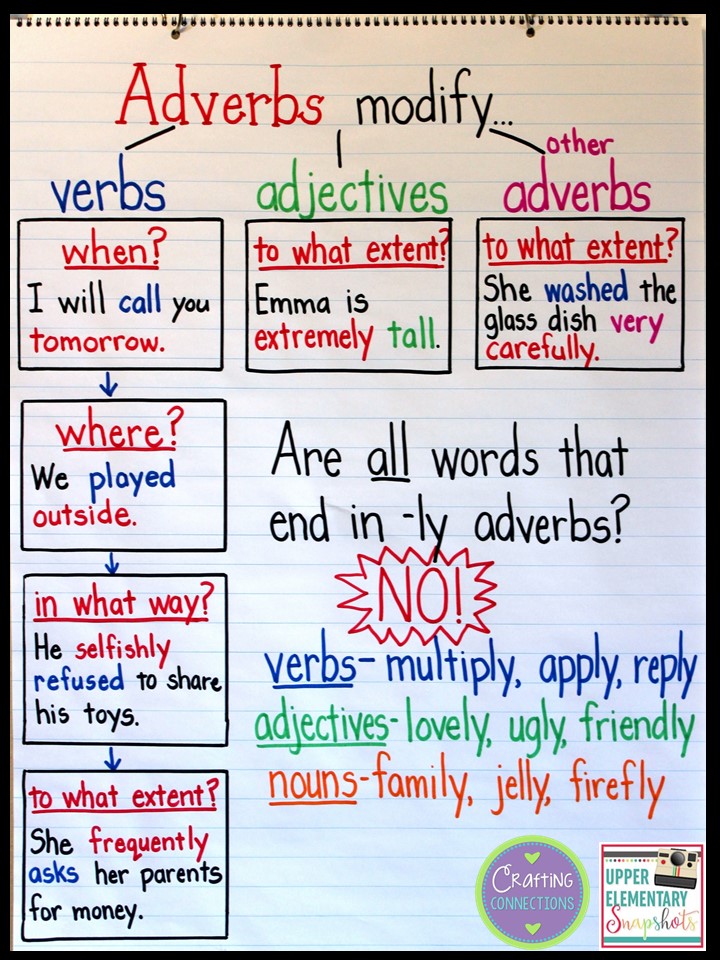 Adverbs modify...
verbs
when?
I will call you
tomorrow.
where?
We played
outside.
in what way?
He selfishly
refused to share
his toys.
to what extent?
She frequently
asks her parents
for money.
adjectives
to what extent?
Emma is
extremely tall.
other
adverbs
to what extent?
She washed the
glass dish very
carefully.
Are all words that
end in -ly adverbs?
NO!
verbs- multiply, apply, reply
adjectives- lovely, ugly, friendly
nouns- family, jelly, firefly
CRAFTING
CONNECTIONS
UPPER
ELEMENTARY
Snapshots